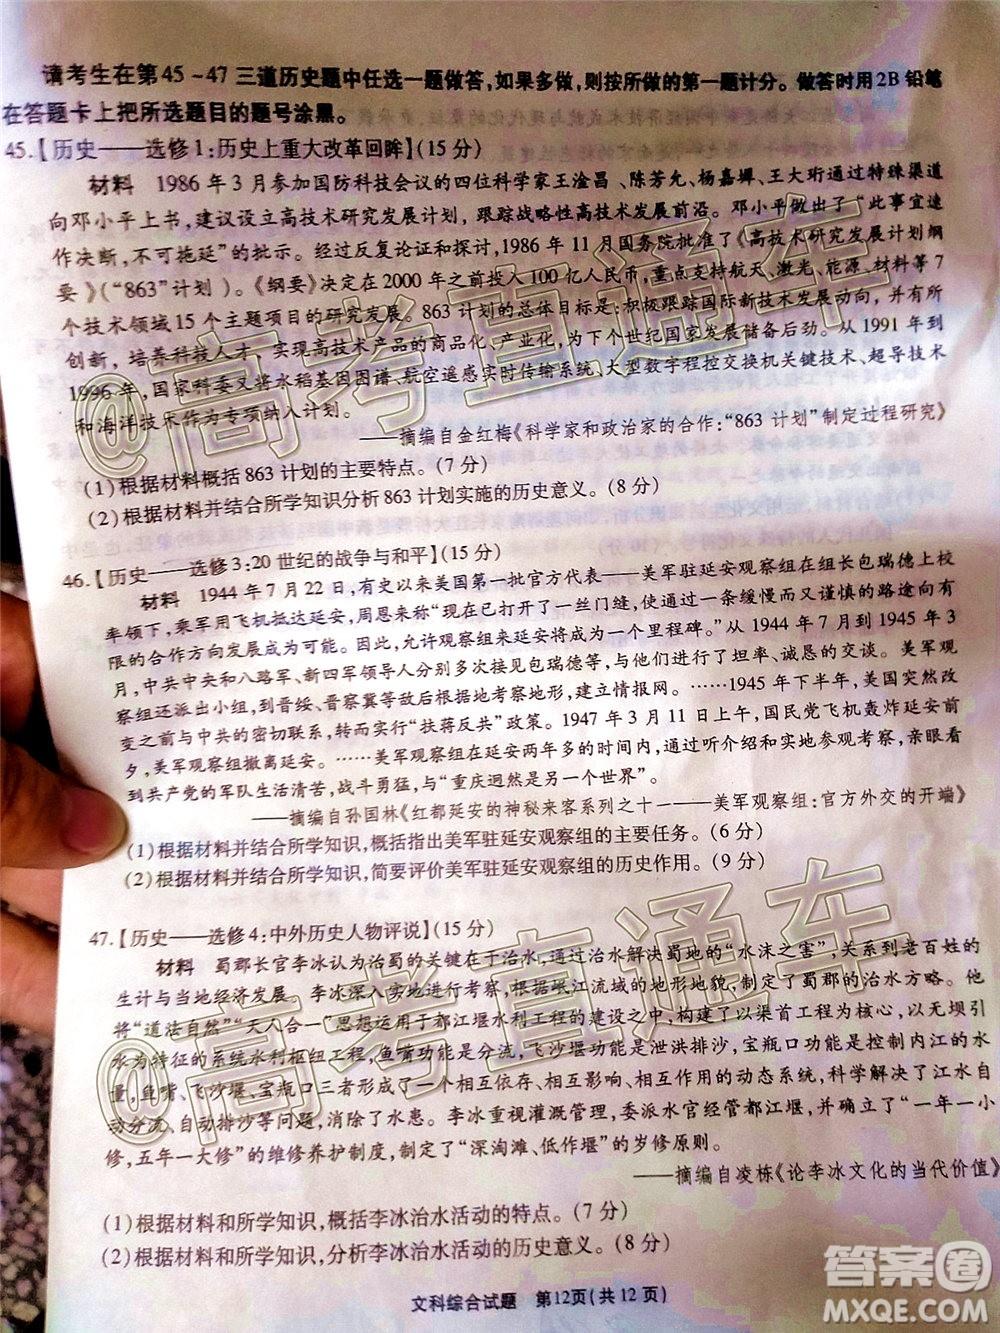 请考生在第45~47三道历史题中任选一题做答,如果多做,则按所做的第一题计分。做答时用2B铅笔
在答题卡上把所选题目的题号涂黑。
45.【历史——选修1:历史上重大改革回眸】(15分)
材料 1986年3月参加国防科技会议的四位科学家王淦昌、陈芳允、杨嘉墀、王大珩通过特殊渠道
向邓小平上书,建议设立高技术研究发展计划,跟踪战略性高技术发展前沿。邓小平做出了“此事宜速
作决断,不可拖延”的批示。经过反复论证和探讨,1986年11月国务院批准了《高技术研究发展计划纲
要》(“863”计划)。《纲要》决定在2000年之前投入100亿人民币,重点支持航天、激光、能源、材料等7
个技术领域15个主题项目的研究发展。863计划的总体目标是:积极跟踪国际新技术发展动向,并有所
创新,培养科技人才、实现高技术产品的商品化、产业化,为下个世纪国家发展储备后劲。从1991年到
1996年,国家科委又将水稻基因图谱、航空遥感实时传输系统、大型数字程控交换机关键技术、超导技术
和海洋技术作为专项纳入计划。
——摘编自金红梅《科学家和政治家的合作:“863计划”制定过程研究》
(1)根据材料概括863计划的主要特点。(7分)
(2)根据材料并结合所学知识分析863计划实施的历史意义。(8分)
46.【历史——选修3:20世纪的战争与和平】(15分)
材料 1944年7月22日,有史以来美国第一批官方代表——美军驻延安观察组在组长包瑞德上校
率领下,乘军用飞机抵达延安,周恩来称“现在已打开了一丝门缝,使成为可以通过一条缓慢而又谨慎的路途向有
限的合作方向发展成为可能。因此,允许观察组来延安将成为一个里程碑。”从1944年7月到1945年3
月,中共中央和八路军、新四军领导人分别多次接见包瑞德等,与他们进行了坦率、诚恳的交谈。美军观
察组还派出小组,到晋绥、晋察冀等敌后根据地考察地形,建立情报网。……1945年下半年,美国突然改
变之前与中共的密切联系,转而实行“扶蒋反共”政策。1947年3月11日上午,国民党飞机轰炸延安前
夕,美军观察组撤离延安。……美军观察组在延安两年多的时间内,通过听介绍和实地参观考察,亲眼看
到共产党的军队生活清苦,战斗勇猛,与“重庆迥然是另一个世界”。
——摘编自孙国林《红都延安的神秘来客系列之十一——美军观察组:官方外交的开端》
(1)根据材料并结合所学知识,概括指出美军驻延安观察组的主要任务。(6分)
(2)根据材料并结合所学知识,简要评价美军驻延安观察组的历史作用。(9分)
47.【历史——选修4:中外历史人物评说】(15分)
材料 蜀郡长官李冰认为治蜀的关键在于治水,通过治水解决蜀地的“水沫之害”,关系到老百姓的
生计与当地经济发展。李冰深入实地进行考察,根据岷江流域的地形地貌,制定了蜀郡的治水方略。他
将“道法自然”“天人合一”思想运用于都江堰水利工程的建设之中,构建了以渠首工程为核心,以无坝引
水为特征的系统水利枢纽工程,鱼嘴功能是分流,飞沙堰功能是泄洪排沙,宝瓶口功能是控制内江的水
量,鱼嘴、飞沙堰、宝瓶口三者形成了一个相互依存、相互影响、相互作用的动态系统,科学地解决了江水自
动分流、自动排沙等问题,消除了水患。李冰重视灌溉管理,委派水官经管都江堰,并确立了“一年一小
修,五年一大修”的维修养护制度,制定了“深淘滩、低作堰”的岁修原则。
——摘编自凌栋《论李冰文化的当代价值》
(1)根据材料和所学知识,概括李冰治水活动的特点。(7分)
(2)根据材料和所学知识,分析李冰治水活动的历史意义。(8分)
文科综合试题 第12页(共12页)
@高考直通车
@高考直通车
答案圈
MXQE.COM